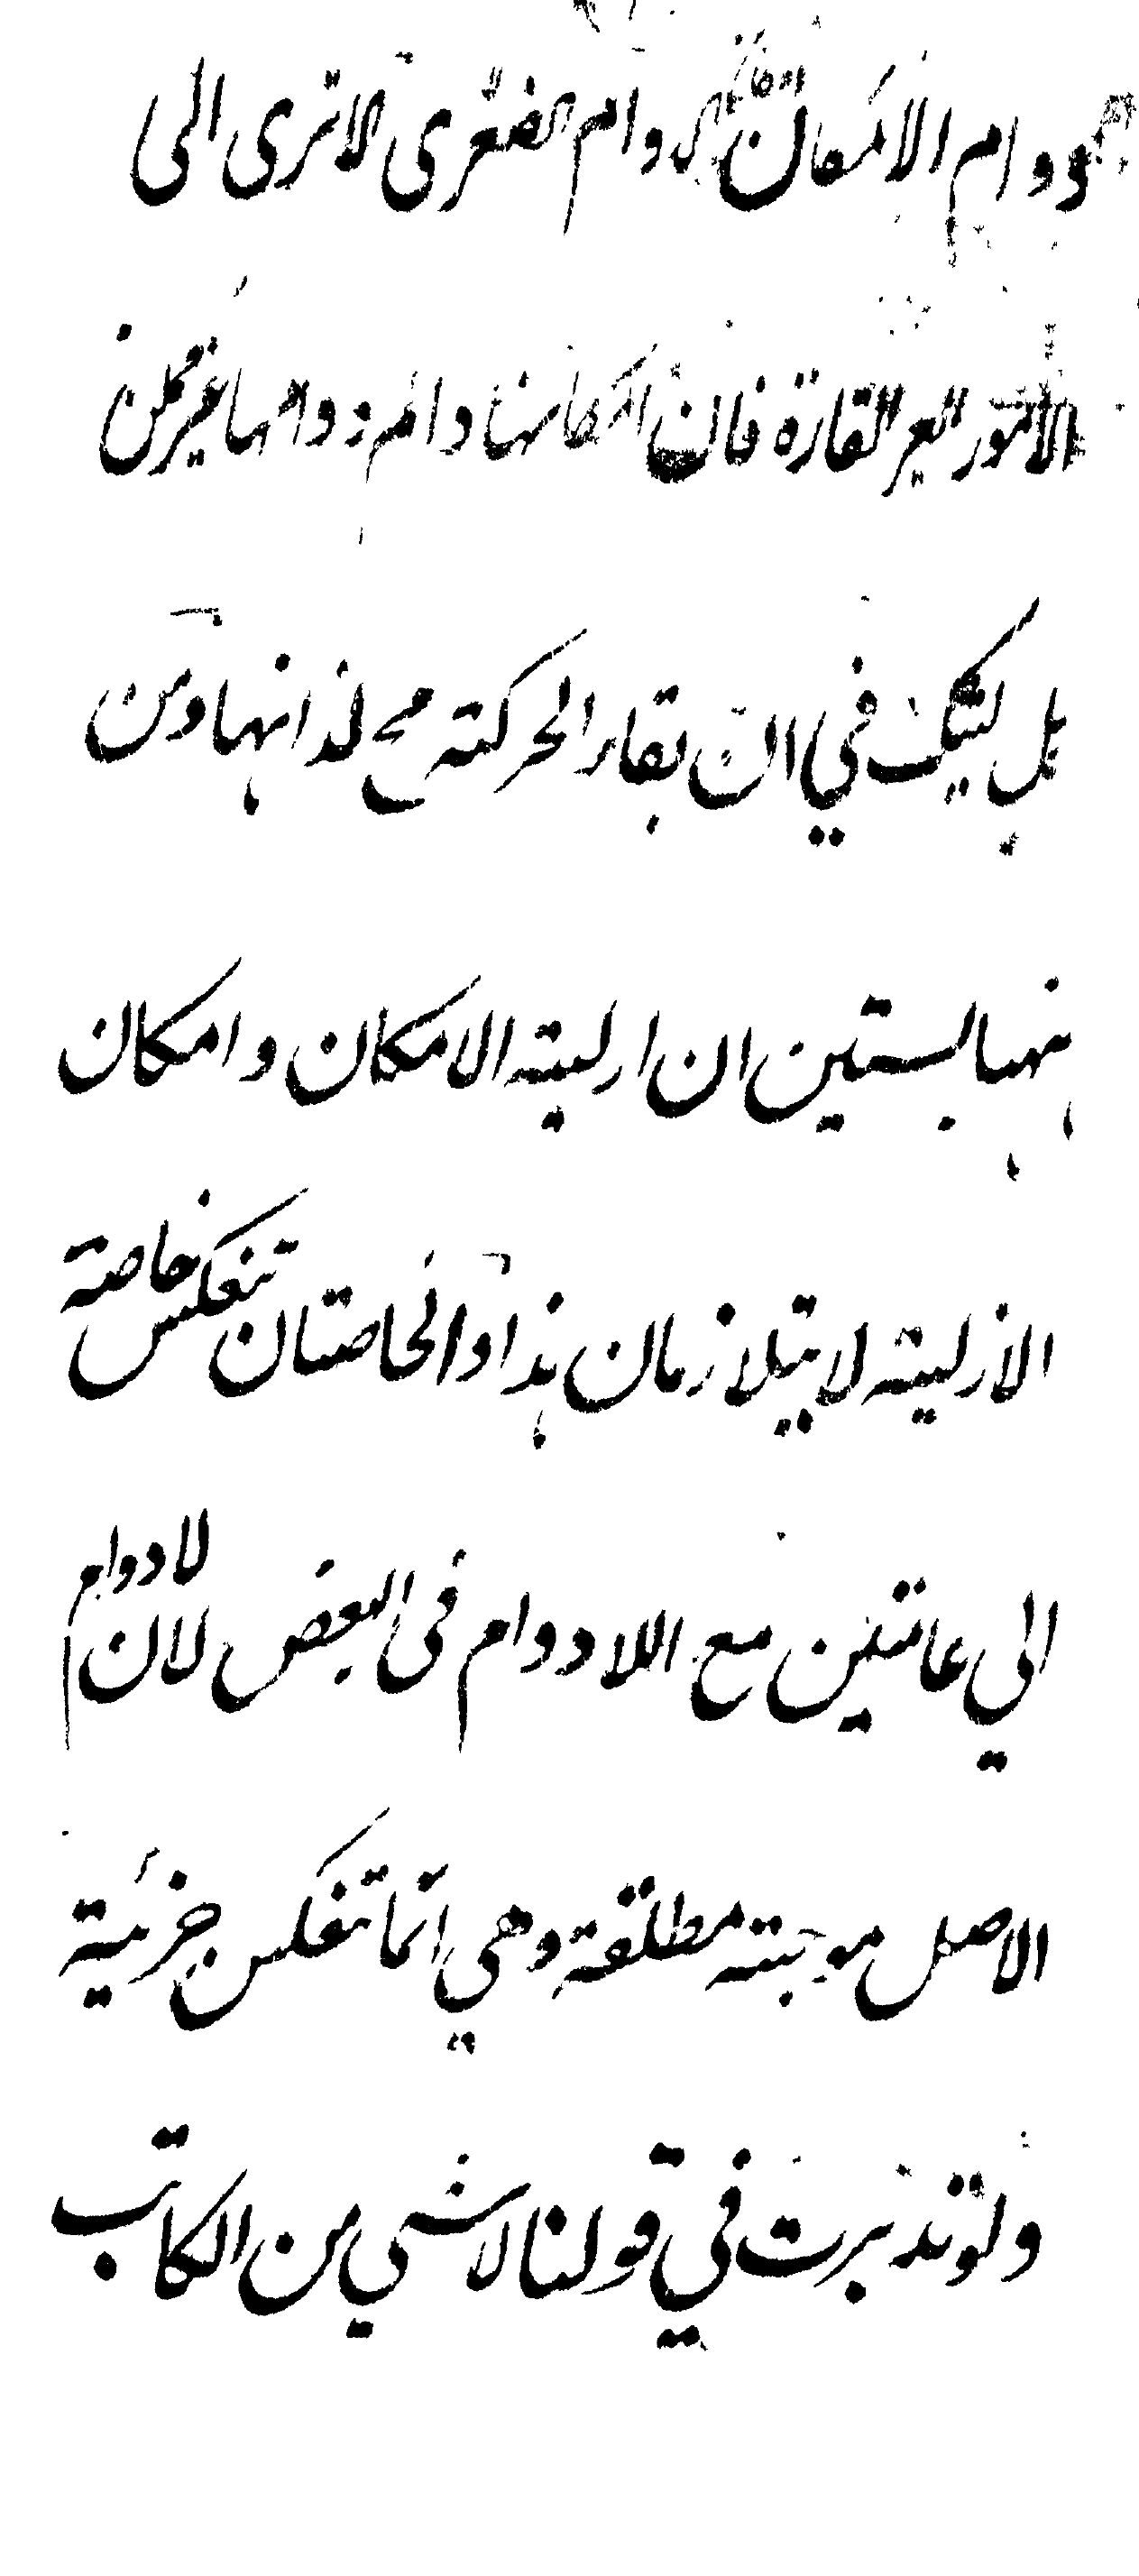 ودوام الامكان دوام الصغرى الا ترى الى
الامور الغير القارة فان امكانها دائم ودوامها غير ممكن
بل ليشك في ان بقاء الحركة مح لذاتها ومن
ههنا يستبين ان ازلية الامكان وامكان
الازلية لا يتلازمان هذا والخاصتان تنعكس خاصة
الي عامتين مع اللادوام في البعض لان لادوام
الاصل موجبة مطلقة وهي انما تنعكس جزئية
ولو تدبرت في قولنا لا شي من الكاتب